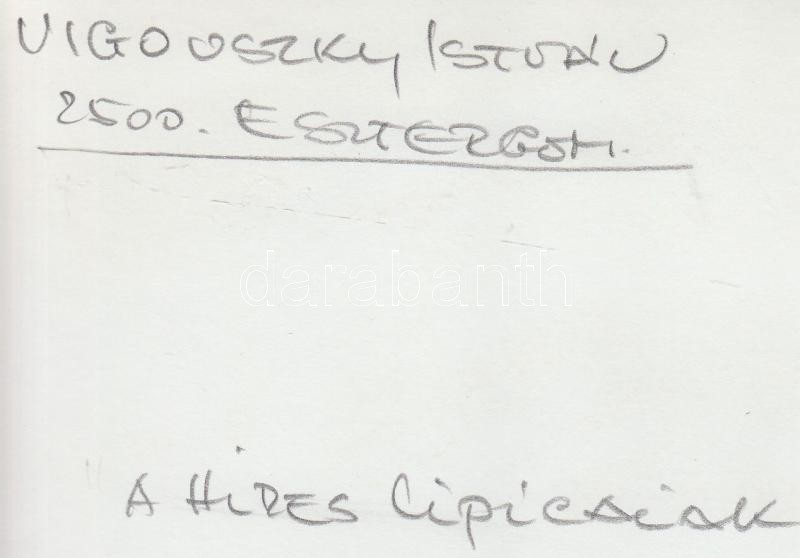 VIGOVSZKY ISTVÁN
2500. ESZTERGOM.
darabanth
A HIRES LIPICAIAK